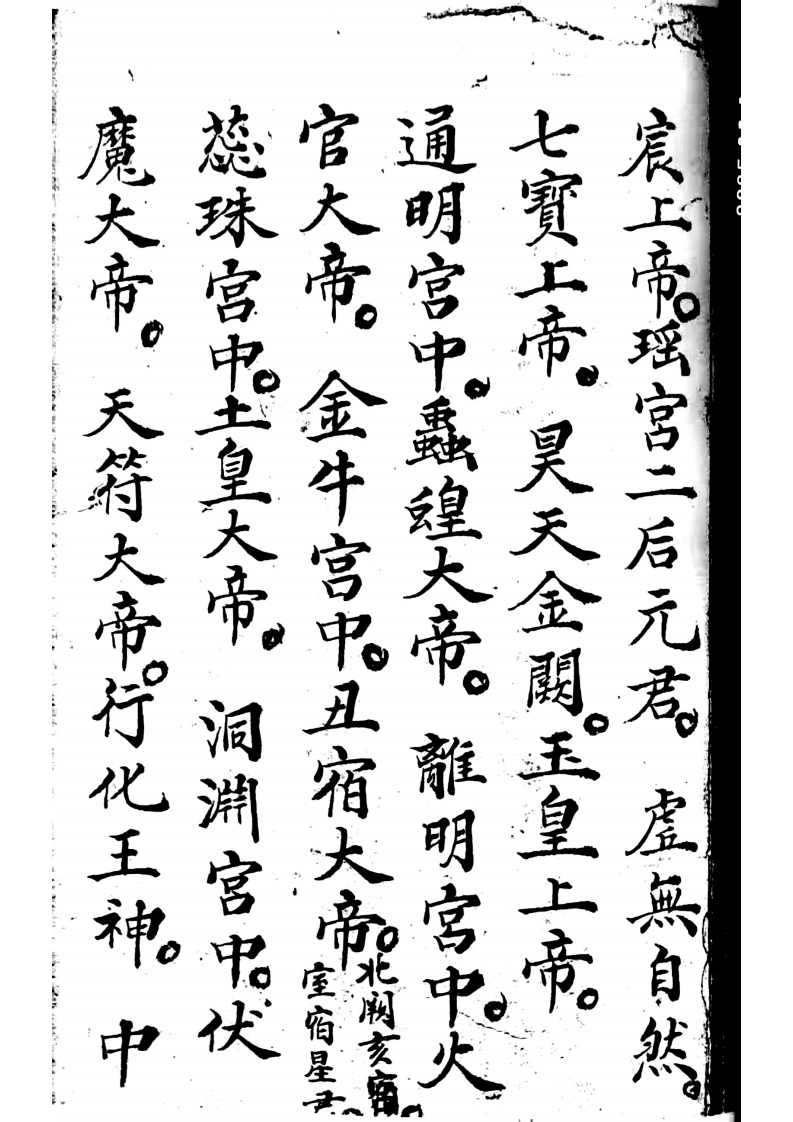 宸上帝。瑶宮二后元君。虛無自然。
七寶上帝。昊天金闕。玉皇上帝。
通明宮中。蠶蝗大帝。離明宮中。火
官大帝。金牛宮中。丑宿大帝。
北闕亥宿。
室宿星君。
蕊珠宮中。土皇大帝。洞淵宮中。伏
魔大帝。天符大帝。行化王神。中